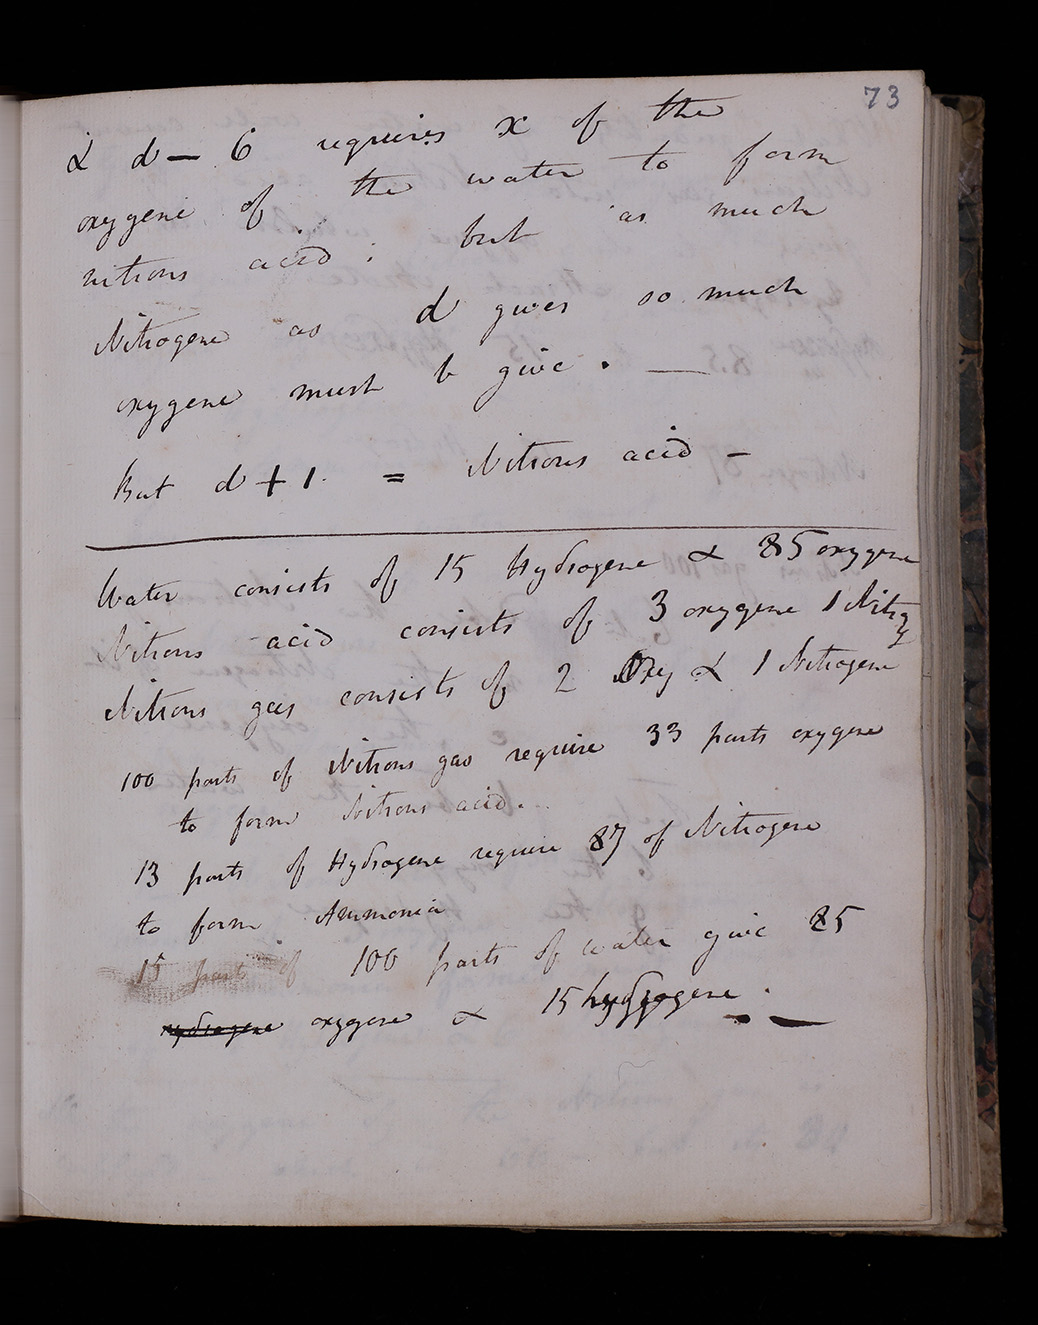 73
& d – 6 requires x of the
oxygene of the water to form
nitrous acid; but as much
Nitrogene as d gives so much
oxygene must b give. —
But d + 1. = Nitrous acid –
Water consists of 15 Hydrogene & 85 oxygene
Nitrous acid consists of 3 oxygene 1 Nitrog
Nitrous gas consists of 2 Oxy & 1 Nitrogene
100 parts of Nitrous gas require 33 parts oxygene
to form Nitrous acid.
13 parts of Hydrogene require 87 of Nitrogene
to form Ammonia
15 parts of 100 parts of water give 85
hydrogene oxygene & 15 hydrogene. —